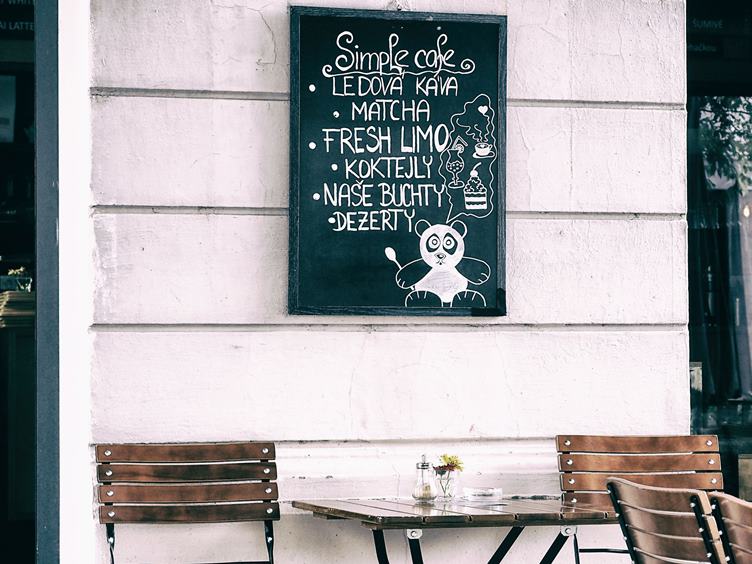 Simple cafe
• LEDOVÁ KÁVA
• MATCHA
• FRESH LIMO
• KOKTEJLY
• NAŠE BUCHTY
• DEZERTY
AI LATTE
ŠUMIVÉ